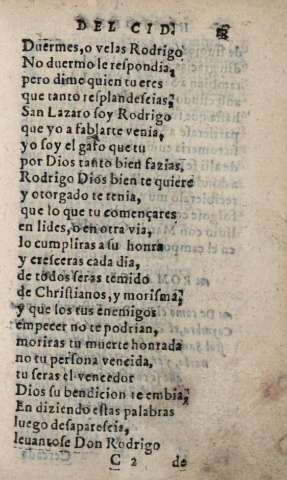 DEL CID.
Duermes, o velas Rodrigo
No duermo le respondia,
pero dime quien tu eres
que tanto resplandescias,
San Lazaro soy Rodrigo
que yo a fablarte venia,
yo soy el gafo que tu
por Dios tanto bien fazias.
Rodrigo Dios bien te quiere
y otorgado te tenia,
que lo que tu començares
en lides, o en otra via,
lo cumpliras a su honra
y cresceras cada dia,
de todos seras temido
de Christianos, y morisma,
y que los tus enemigos
empecer no te podrian,
moriras tu muerte honrada
no tu persona vencida,
tu seras el vencedor
Dios su bendicion te embia,
En diziendo estas palabras
luego desaparescia,
leuantose Don Rodrigo
C 2 de